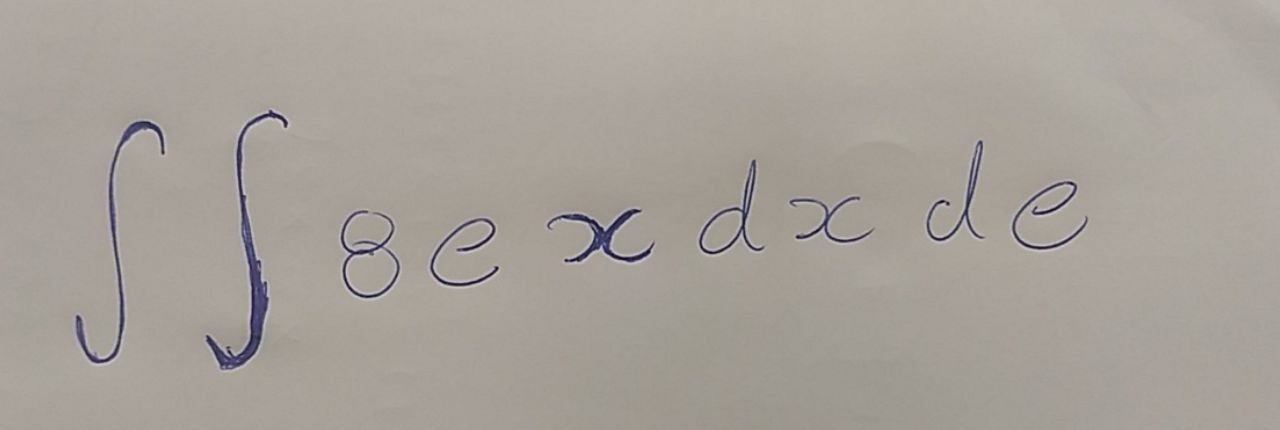 ∫∫ 8 e x dx de